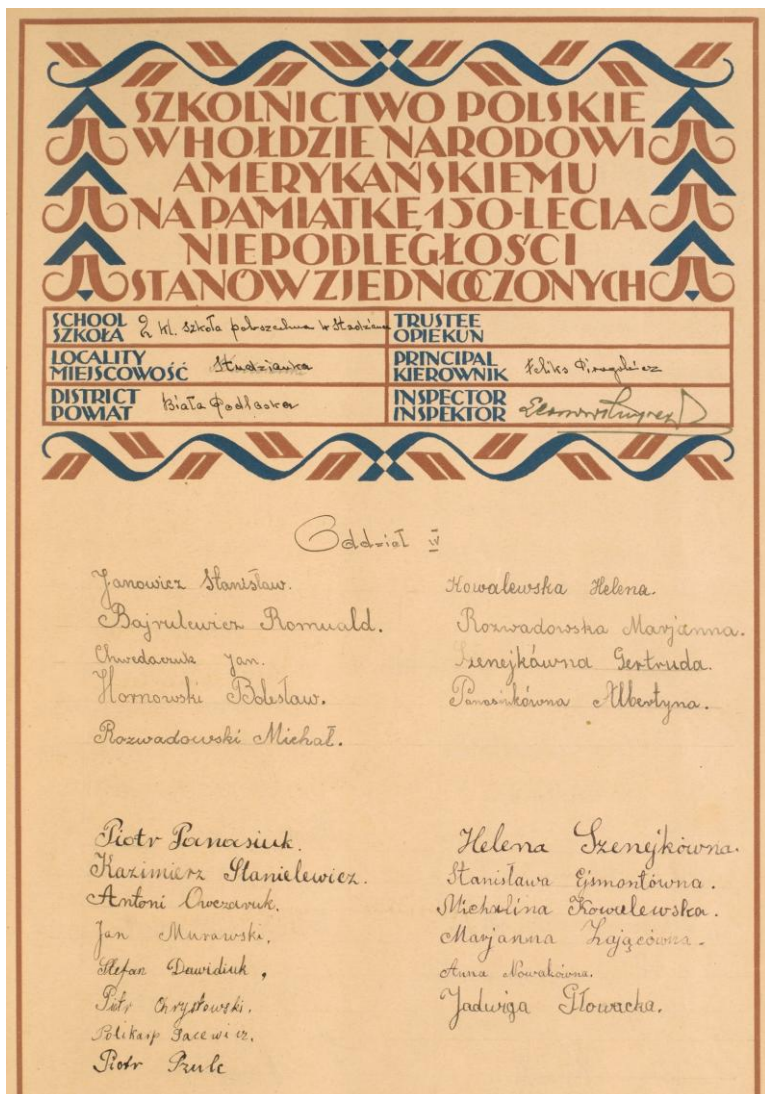 SZKOLNICTWO POLSKIE
W HOŁDZIE NARODOWI
AMERYKAŃSKIEMU
NA PAMIĄTKĘ 150-LECIA
NIEPODLEGŁOŚCI
STANÓW ZJEDNOCZONYCH
SCHOOL
SZKOŁA 2 kl. szkoła powszechna w
TRUSTEE
OPIEKUN
LOCALITY
MIEJSCOWOŚĆ Studzianka
PRINCIPAL
KIEROWNIK Feliks
DISTRICT
POWIAT Biała Podlaska
INSPECTOR
INSPEKTOR
Oddział IV
Janowicz Stanisław.
Bajrulewicz Romuald.
Chwedaczuk Jan.
Hornowski Bolesław.
Rozwadowski Michał.
Kowalewska Helena.
Rozwadowska Marjanna.
Szenejkówna Gertruda.
Panasiukówna Albertyna.
Piotr Panasiuk.
Kazimierz Stanielewicz.
Antoni Owczaruk.
Jan Murawski.
Stefan Dawidiuk,
Piotr Chrystowski.
Polikarp Jacewicz.
Piotr Szulc
Helena Szenejkówna.
Stanisława Ejsmontówna.
Michalina Kowalewska.
Marjanna Zającówna.
Anna Nowakówna.
Jadwiga Głowacka.